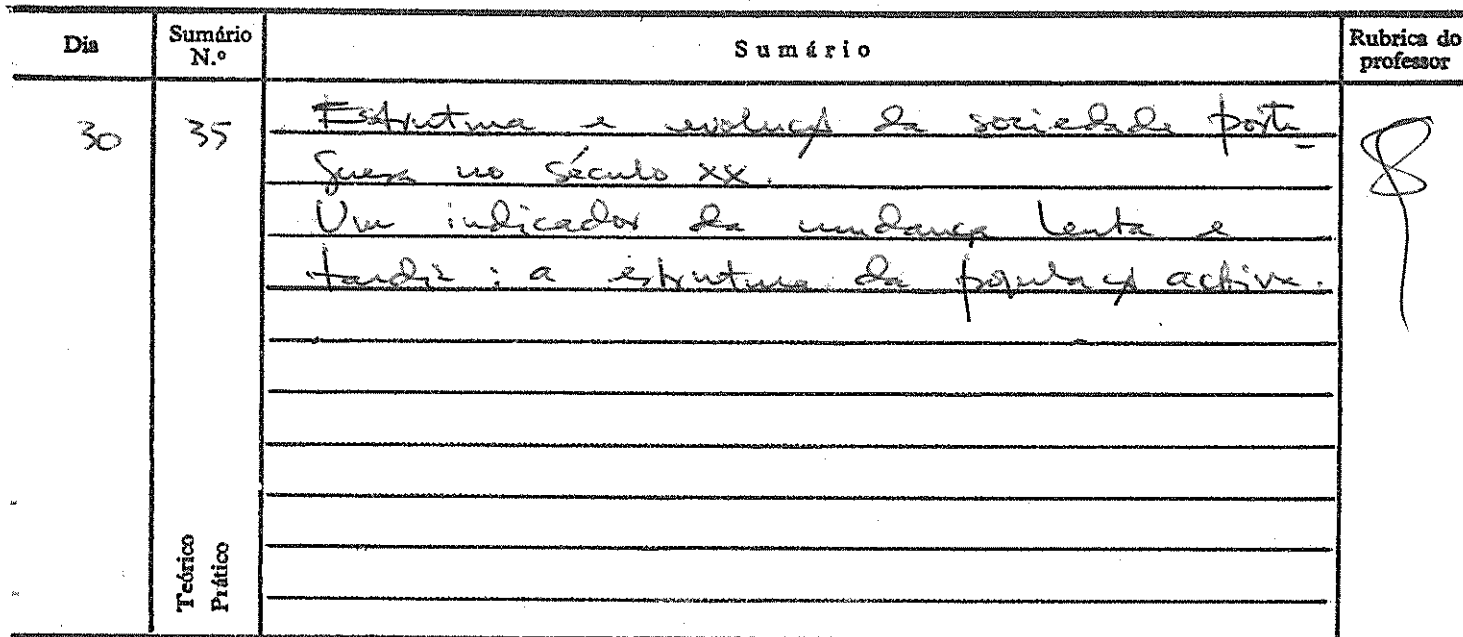 Dia Sumário N.º Sumário Rubrica do professor
30 35 Estrutura e evolução da sociedade portu-
guesa no século XX.
Um indicador da mudança lenta e
tardia: a estrutura da população activa.
Teórico
Prático